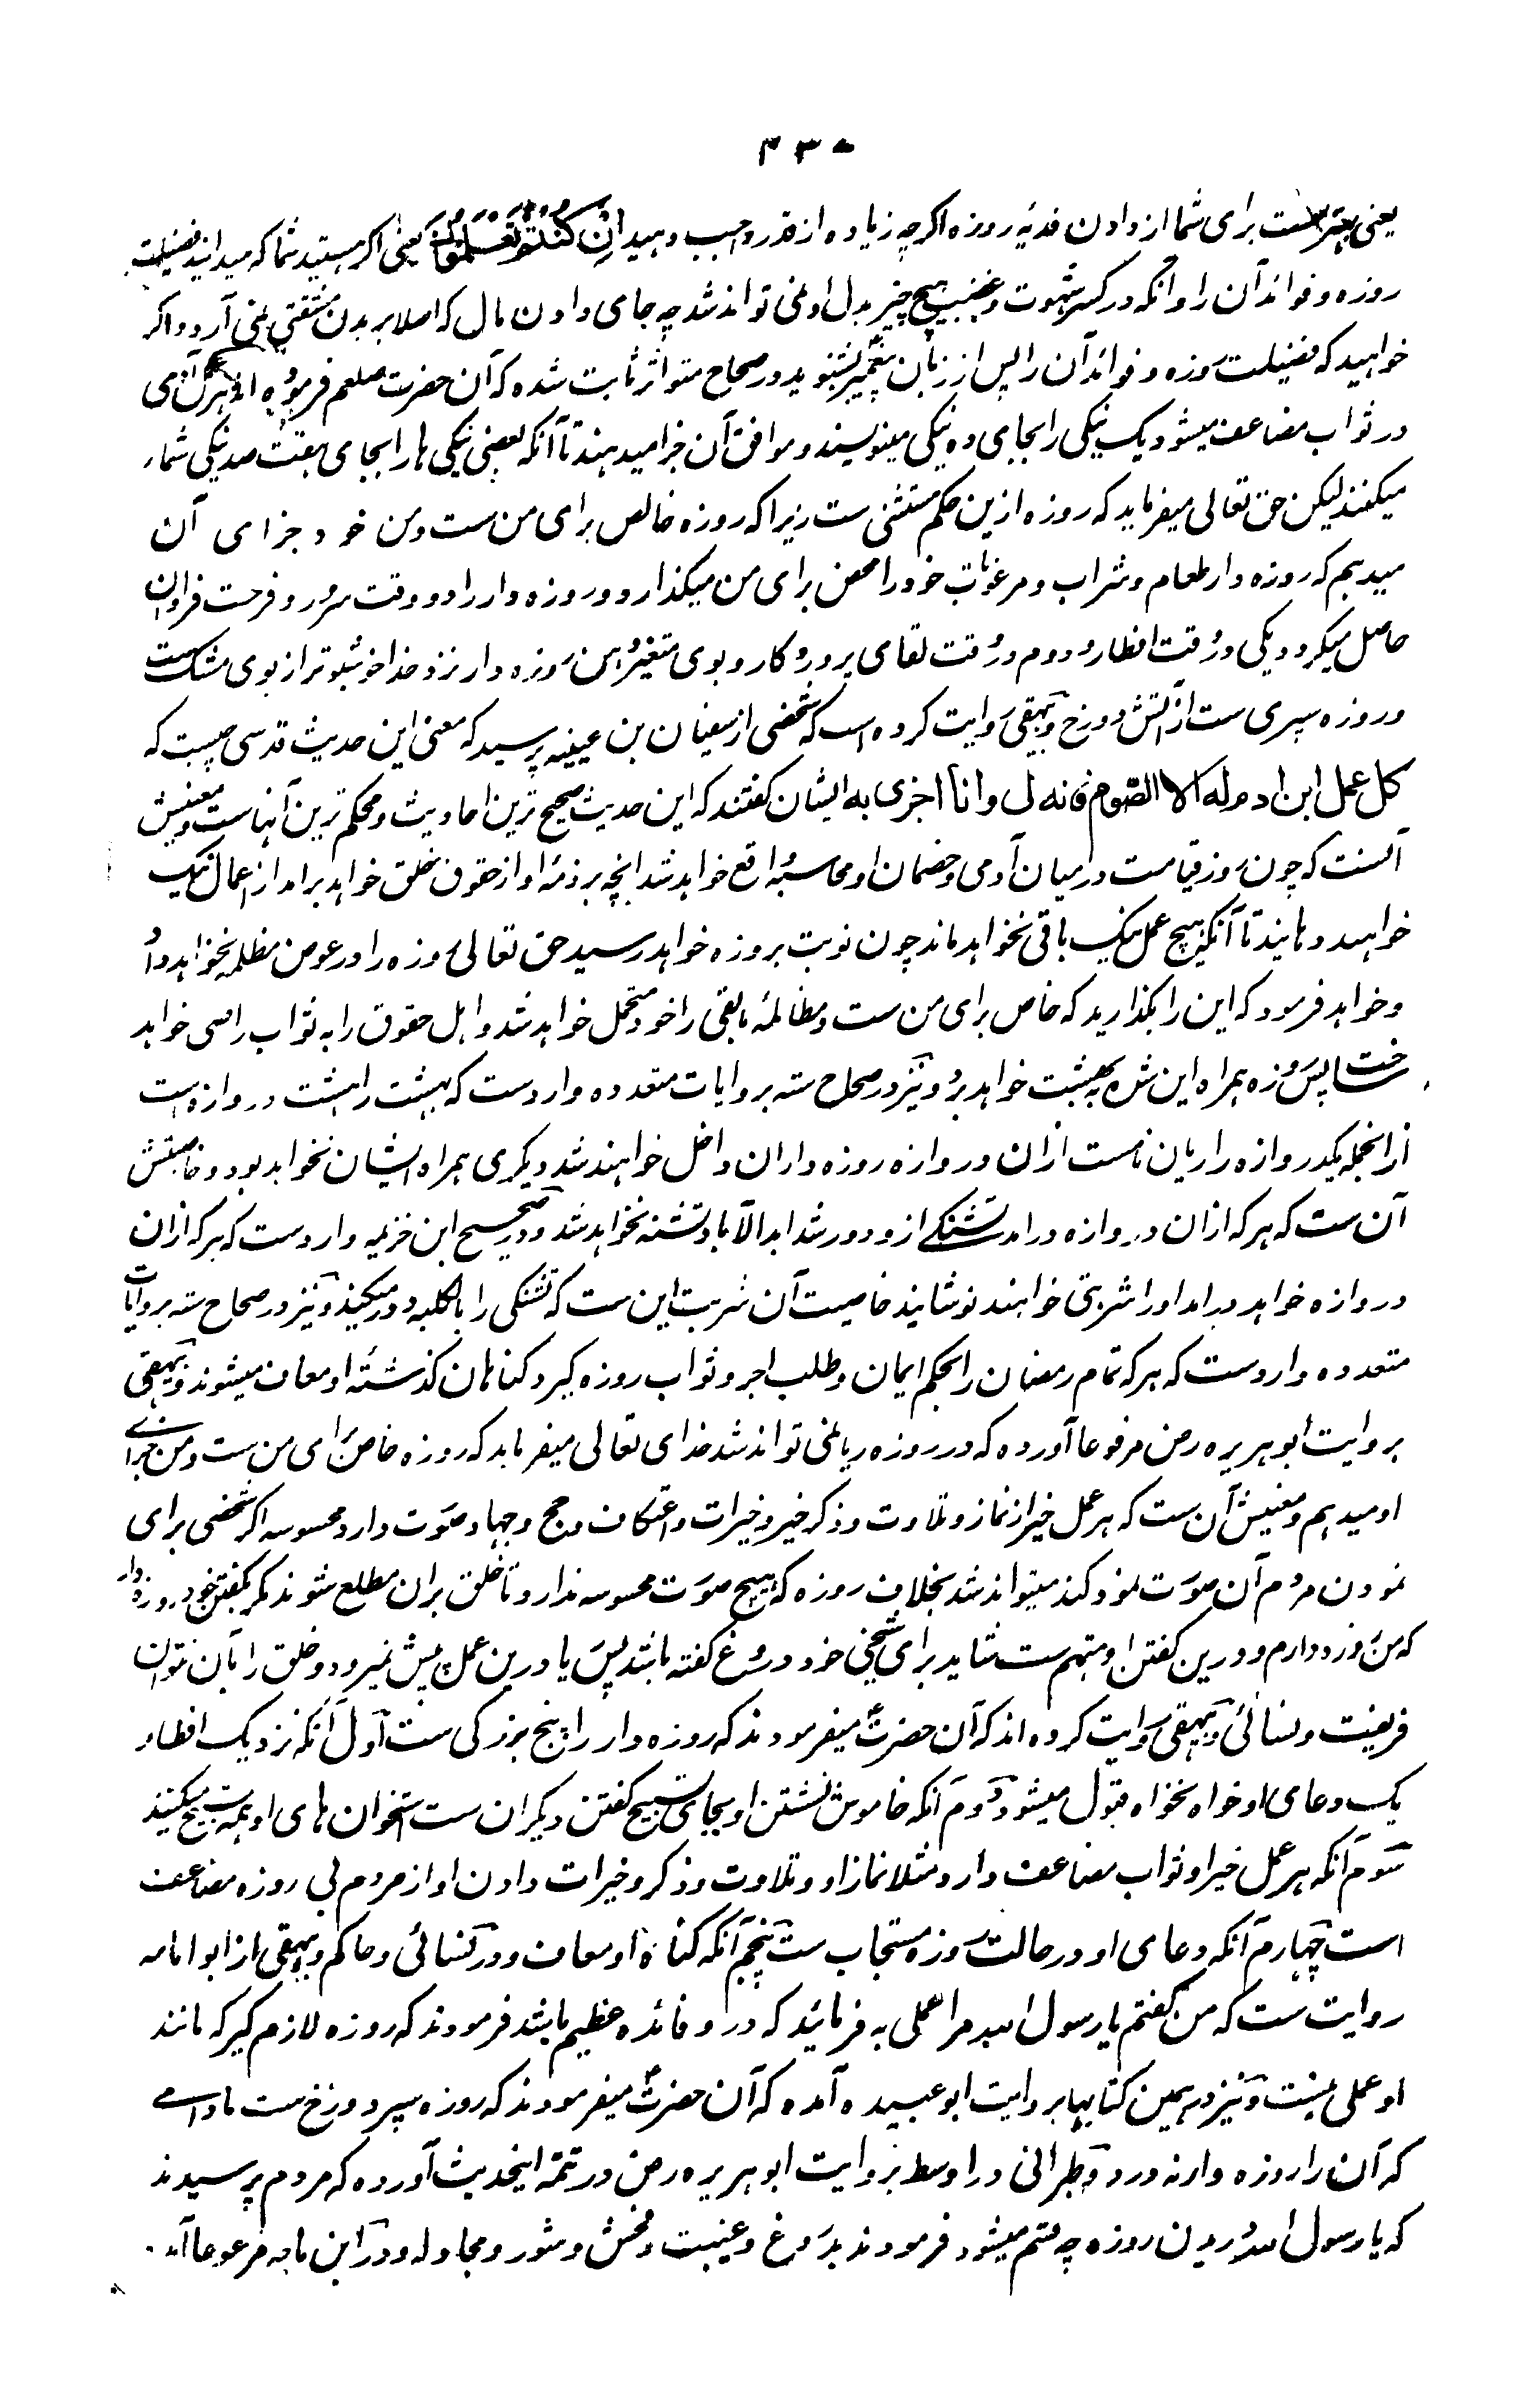 ۴۳۰
یعنی بهتر است برای شما از دادن فدیهٔ روزه اگرچه زیاده از قدر واجب دهید اِنْ كُنْتُمْ تَعْلَمُوْنَ یعنی اگر هستید شما که میدانید فضیلت
روزه و فوائد آن را و آنکه در کسر شهوت و غضب هیچ چیز بدل او نمی تواند شد چه جای دادن مال که اصلا بر بدن مشقتی نمی آرد و اگر
خواهید که فضیلت روزه و فوائد آن را پس از زبان پیغمبر بشنوید در صحاح متواتر ثابت شده که آن حضرت صلعم فرموده اند هر عمل آدمی
در ثواب مضاعف میشود یک نیکی را بجای ده نیکی مینویسند و موافق آن جزا میدهند تا آنکه بعضی نیکی ها را بجای هفت صد نیکی شمار
میکنند لیکن حق تعالی میفرماید که روزه ازین حکم مستثنی ست زیرا که روزه خالص برای من ست و من خود جزای آن
میدهم که روزه دار طعام و شراب و مرغوبات خود را محض برای من میگذارد و روزه دار را دو وقت سرور و فرحت فراوان
حاصل میگردد یکی در وقت افطار و دوم در وقت لقای پروردگار و بوی متغیر دهن روزه دار نزد خدا خوشبوتر از بوی مشک ست
و روزه سپری ست از آتش دوزخ و بیهقی روایت کرده است که شخصی از سفیان بن عیینه پرسید که معنی این حدیث قدسی چیست که
كل عمل ابن ادم له الا الصوم فانه لی وانا اجزی به ایشان گفتند که این حدیث صحیح ترین احادیث و محکم ترین آنهاست و معنیش
آنست که چون روز قیامت درمیان آدمی و خصمان او محاسبه واقع خواهد شد انچه بر ذمهٔ او از حقوق خلق خواهد برامد از اعمال نیک
خواهند دهانید تا آنکه هیچ عمل نیک باقی نخواهد ماند چون نوبت بروزه خواهد رسید حق تعالی روزه را در عوض مظلمه نخواهد داد
و خواهد فرمود که این را بگذارید که خاص برای من ست و مظالمهٔ مابقی را خود متحمل خواهد شد و اهل حقوق را به ثواب راضی خواهد
ساخت پس روزه همراه این شده به بهشت خواهد برد و نیز در صحاح سته بروایات متعدده وارد ست که بهشت را هشت دروازه است
از انجمله یکدروازه را ریان نامست ازان دروازه روزه داران داخل خواهند شد دیگری همراه ایشان نخواهد بود و خاصیتش
آن ست که هر که ازان دروازه درامد تشنگی ازو دور شد ابدالآباد تشنه نخواهد شد و در صحیح ابن خزیمه وارد ست که هر که ازان
دروازه خواهد درامد او را شربتی خواهند نوشانید خاصیت آن شربت این ست که تشنگی را بالکلیه دور میکند و نیز در صحاح سته بروایات
متعدده وارد ست که هر که تمام رمضان را بحکم ایمان و طلب اجر و ثواب روزه گیرد گناهان گذشتهٔ او معاف میشوند و بیهقی
بروایت ابو هریره رض مرفوعا آورده که در روزه ریا نمی تواند شد خدای تعالی میفرماید که روزه خاص برای من ست و من جزای
او میدهم و معنیش آن ست که هر عمل خیر از نماز و تلاوت و ذکر خیر و خیرات و اعتکاف و حج و جهاد صورت دارد محسوسه اگر شخصی برای
نمودن مردم آن صورت نمود کند میتواند شد بخلاف روزه که هیچ صورت محسوسه ندارد تا خلق بران مطلع شوند مگر بگفتن خود روزه دار
که من روزه دارم و درین گفتن او متهم ست شاید برای شیخی خود دروغ گفته باشد پس ریا درین عمل پیش نمیرود و خلق را بآن نتوان
فریفت و نسائی و بیهقی روایت کرده اند که آن حضرت میفرمودند که روزه دار را پنج بزرگی ست اول آنکه نزدیک افطار
یک دعای او خواه نخواه قبول میشود دوم آنکه خاموش نشستن او بجای تسبیح گفتن دیگران ست استخوان های او همه تسبیح میکنند
سوم آنکه هر عمل خیر او ثواب مضاعف دارد مثلا نماز او و تلاوت و ذکر و خیرات دادن او از مردم بی روزه مضاعف
است چهارم آنکه دعای او در حالت روزه مستجاب ست پنجم آنکه گناه او معاف و در نسائی و حاکم و بیهقی از ابو امامه
روایت ست که من گفتم یا رسول الله مرا عملی به فرمائید که در و فائده عظیم باشد فرمودند که روزه لازم گیر که مانند
او عملی نیست و نیز در همین کتابها بروایت ابو عبیده آمده که آن حضرت میفرمودند که روزه سپر دوزخ ست مادامی
که آن را روزه دار ندرد و طبرانی در اوسط بروایت ابو هریره رض در تتمهٔ اینحدیث آورده که مردم پرسیدند
که یا رسول الله دریدن روزه چه قسم میشود فرمودند بدروغ و غیبت و فحش و شور و مجادله و در ابن ماجه مرفوعا آمد